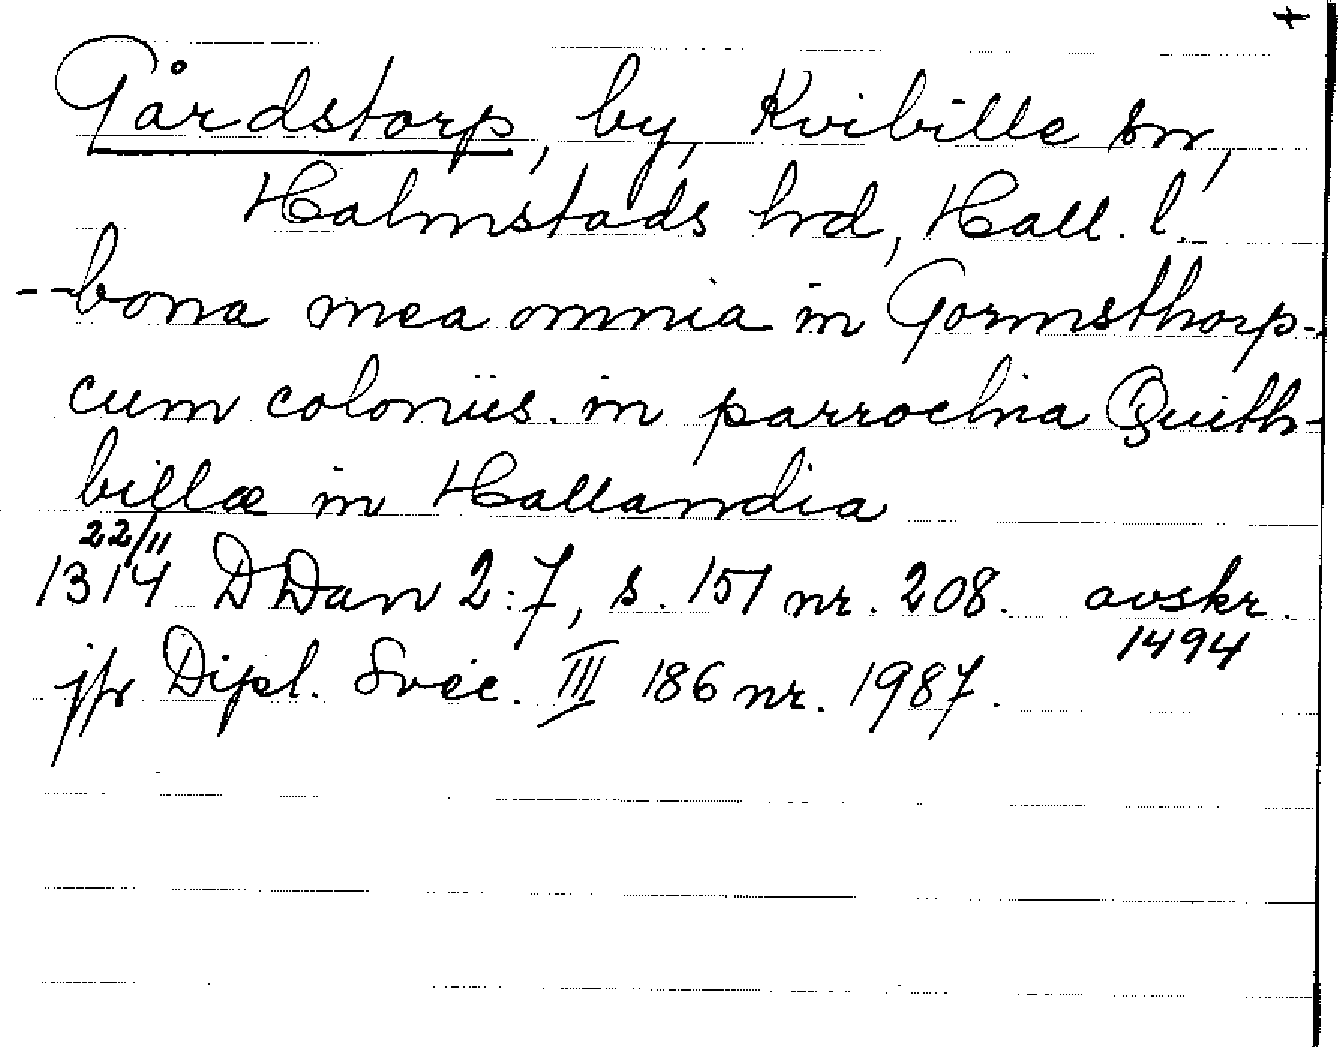 +
Gårdstorp, by, Kvibille sn,
Halmstads hrd, Hall. l.
-- bona mea omnia in Gormsthorp-
cum coloniis. in parrochia Quith-
billæ in Hallandia
22/11
1314 DDan 2:7, s. 151 nr. 208. avskr.
1494
jfr Dipl. Svec. III 186 nr. 1987.